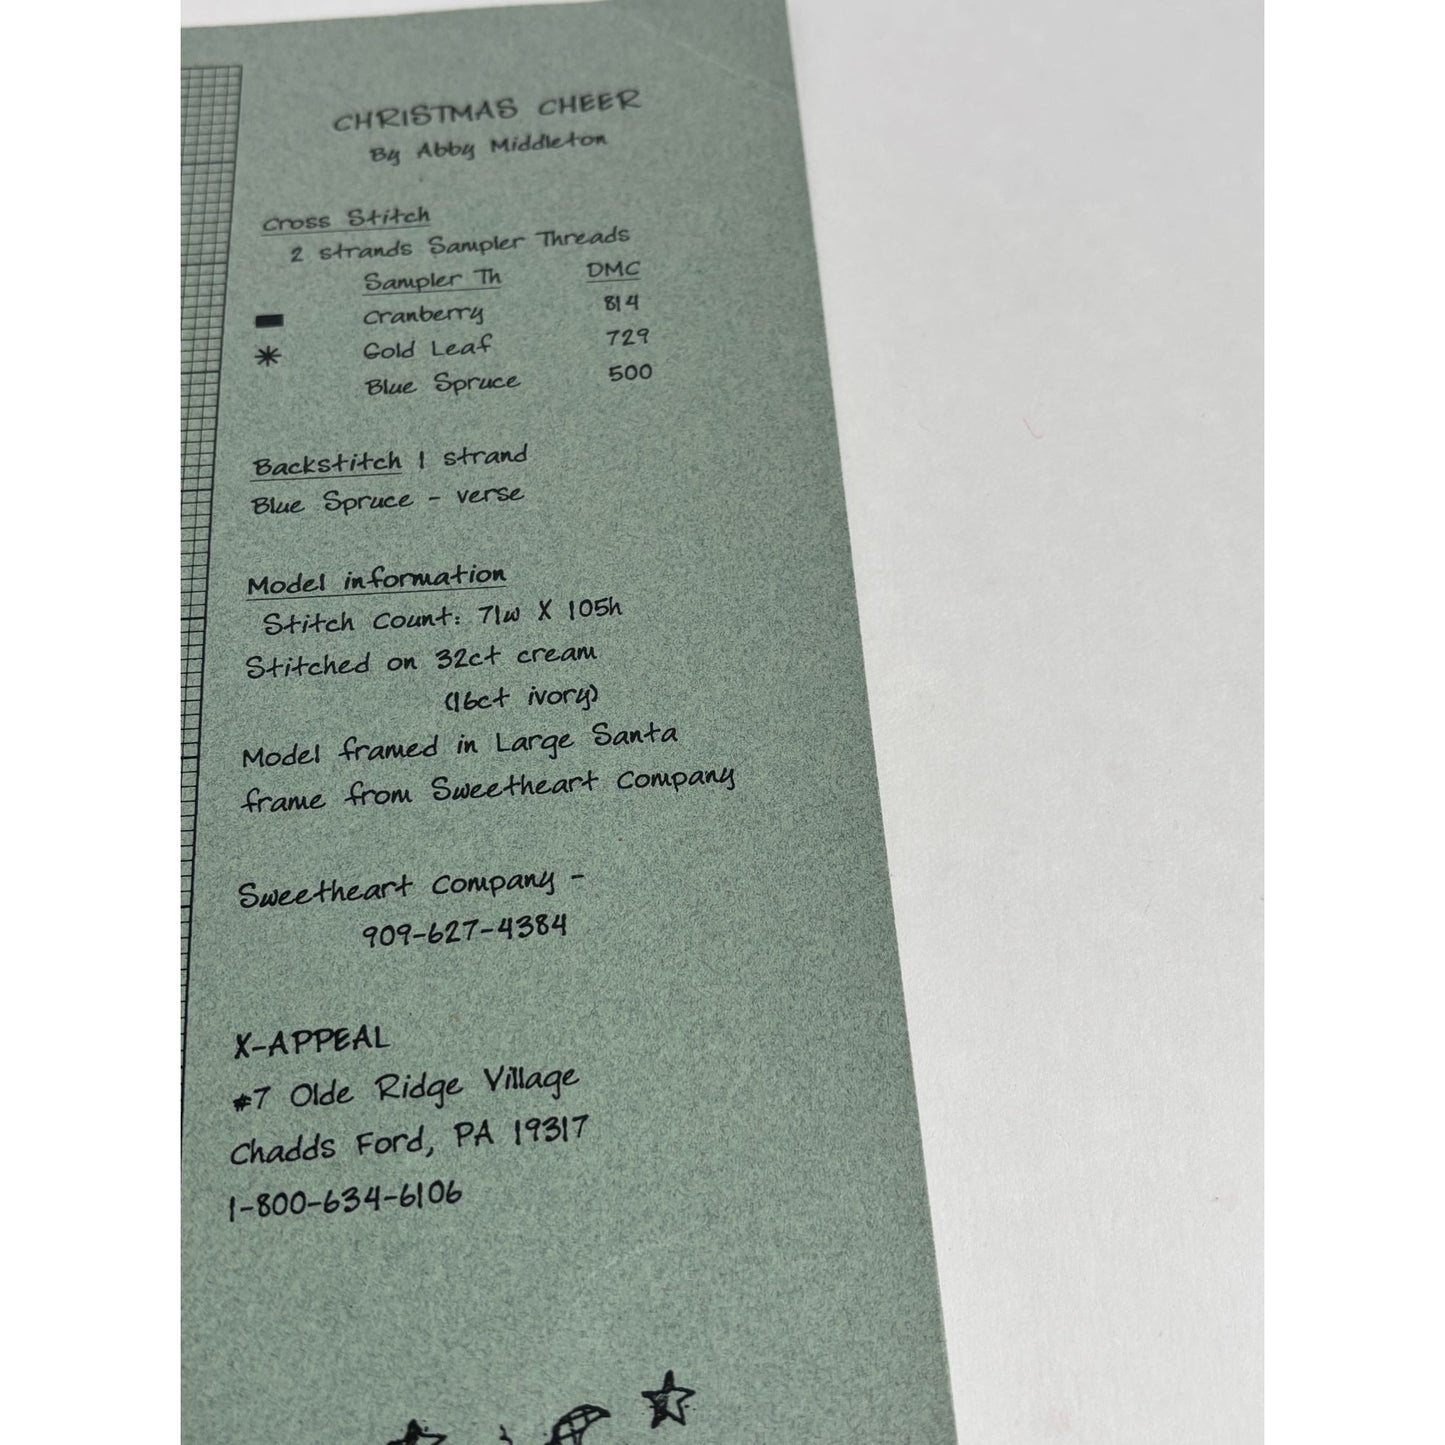 CHRISTMAS CHEER
By Abby Middleton
Cross Stitch
2 strands Sampler Threads
Sampler Th DMC
Cranberry 814
Gold Leaf 729
Blue Spruce 500
Backstitch 1 strand
Blue Spruce - verse
Model information
Stitch Count: 71w X 105h
Stitched on 32ct cream
(16ct ivory)
Model framed in Large Santa
frame from Sweetheart Company
Sweetheart Company -
909-627-4384
X-APPEAL
#7 Olde Ridge Village
Chadds Ford, PA 19317
1-800-634-6106